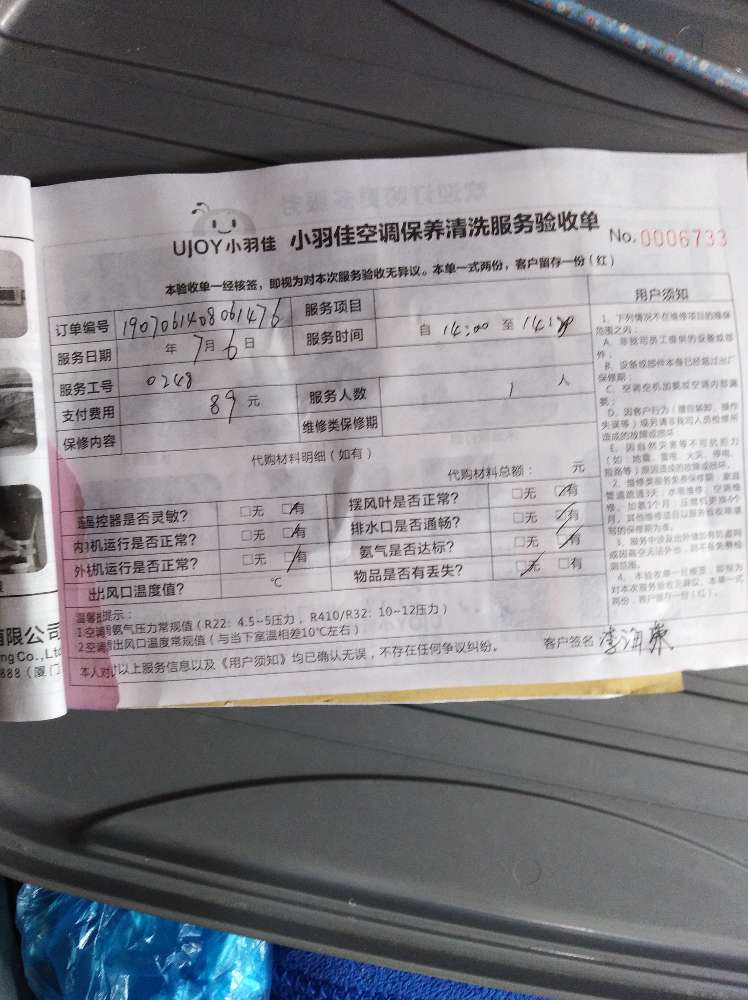 UJOY小羽佳 小羽佳空调保养清洗服务验收单 No.0006733
本验收单一经核签，即视为对本次服务验收无异议。本单一式两份，客户留存一份（红）
订单编号 1907061408061476 服务项目
服务日期 年 7月 6日 服务时间 自 14:00 至
服务工号 0248
支付费用 89 元 服务人数 1 人
保修内容 维修类保修期
代购材料明细（如有）
代购材料总额： 元
温控器是否灵敏？ □无 □有 摆风叶是否正常？ □无 □有
内机运行是否正常？ □无 □有 排水口是否通畅？ □无 □有
外机运行是否正常？ □无 □有 氨气是否达标？ □无 □有
出风口温度值？ ℃ 物品是否有丢失？ □无 □有
温馨提示：
1空调氨气压力常规值（R22：4.5~5压力，R410/R32：10~12压力）
2空调出风口温度常规值（与当下室温相差10℃左右）
本人对以上服务信息以及《用户须知》均已确认无误，不存在任何争议纠纷。 客户签名 李海
用户须知
1、下列情况不在维修项目的维保
范围之内：
A、非我司员工提供的设备或部
件；
B、设备或部件本身已经超过出厂
保修期；
C、空调危机加氨或空调内部漏
氨；
D、因客户行为（擅自装卸、操作
失误等）或另请非我司人员检修所
造成的故障或损坏
E、因自然灾害等不可抗能力
（如：地震、雷电、火灾、停电、
短路等）原因造成的故障或损坏。
2、维修类服务免费保修期：家庭
管道疏通3天；水电维修、空调维
修、加氨1个月；压缩机更换6个
月，其他维修项目以服务验收单填
写的保修期为准。
3、服务中涉及出外墙如有防盗网
或因高空无法外出，则不含免费检
测范围。
4、本验收单一经核签，即视为
对本次服务验收无异议，本单一式
两份，客户留存一份（红）。
有限公司
ng Co.,Ltd
888（厦门